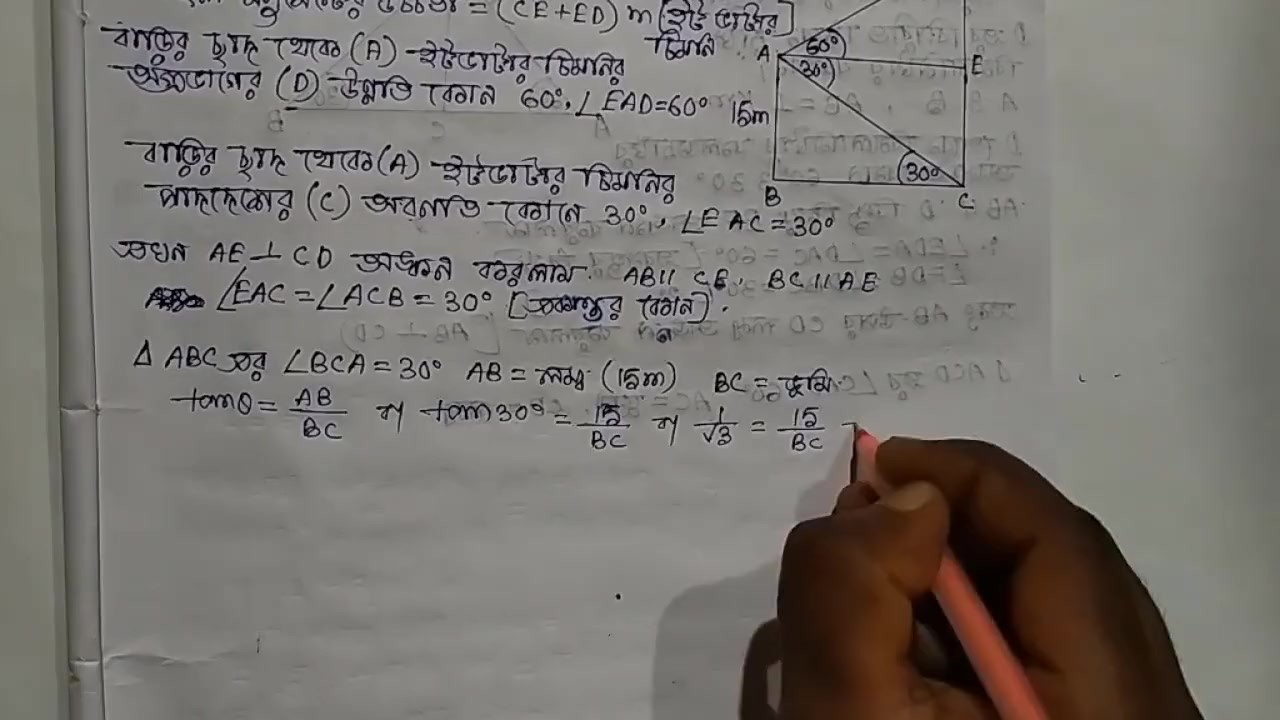 উচ্চতা = (CE+ED) m [ইট ভাটার চিমনি]
বাড়ির ছাদ থেকে (A) ইটভাটার চিমনির
অগ্রভাগের (D) উন্নতি কোন 60°, ∠EAD=60°
বাড়ির ছাদ থেকে (A) ইটভাটার চিমনির
পাদদেশের (C) অবনতি কোনে 30°, ∠EAC=30°
এখন AE⊥CD অঙ্কন করলাম. AB∥CE, BC∥AE
∠EAC=∠ACB=30° [একান্তর কোন].
Δ ABC এর ∠BCA=30° AB = লম্ব (15m) BC = ভূমি
tanθ = AB/BC বা tan30° = 15/BC বা 1/√3 = 15/BC
A 60° E
30°
15m
30°
B C